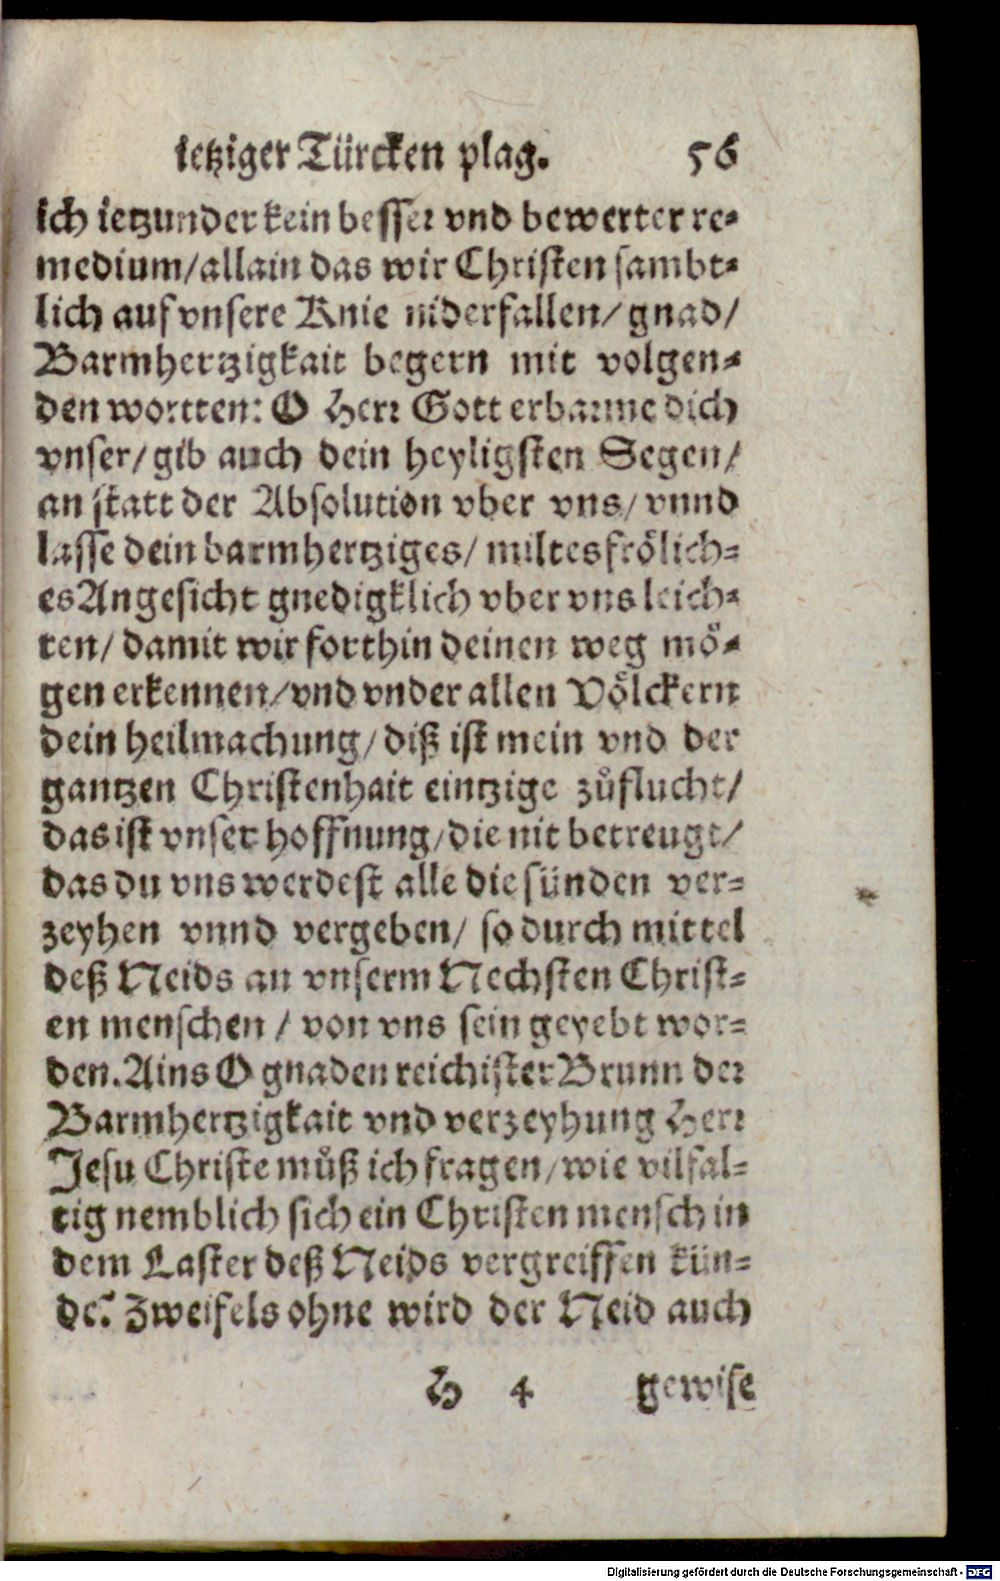 ietziger Türcken plag. 56
ich ietzunder kein besser vnd bewerter re-
medium/allain das wir Christen sambt-
lich auf vnsere Knie niderfallen/ gnad/
Barmhertzigkait begern mit volgen-
den wortten: O Herr Gott erbarme dich
vnser/ gib auch dein heyligsten Segen/
an statt der Absolution vber vns/ vnnd
lasse dein barmhertziges/ miltes frölich-
es Angesicht gnedigklich vber vns leich-
ten/ damit wir forthin deinen weg mö-
gen erkennen/vnd vnder allen Völckern
dein heilmachung/ diß ist mein vnd der
gantzen Christenhait eintzige zůflucht/
das ist vnser hoffnung/die nit betreugt/
das du vns werdest alle die sünden ver-
zeyhen vnnd vergeben/ so durch mittel
deß Neids an vnserm Nechsten Christ-
en menschen / von vns sein geyebt wor-
den. Ains O gnaden reichister Brunn der
Barmhertzigkait vnd verzeyhung Herr
Jesu Christe můß ich fragen/wie vilfal-
tig nemblich sich ein Christen mensch in
dem Laster deß Neids vergreiffen kün-
de? Zweifels ohne wird der Neid auch
H 4 gewise
Digitalisierung gefördert durch die Deutsche Forschungsgemeinschaft - DFG